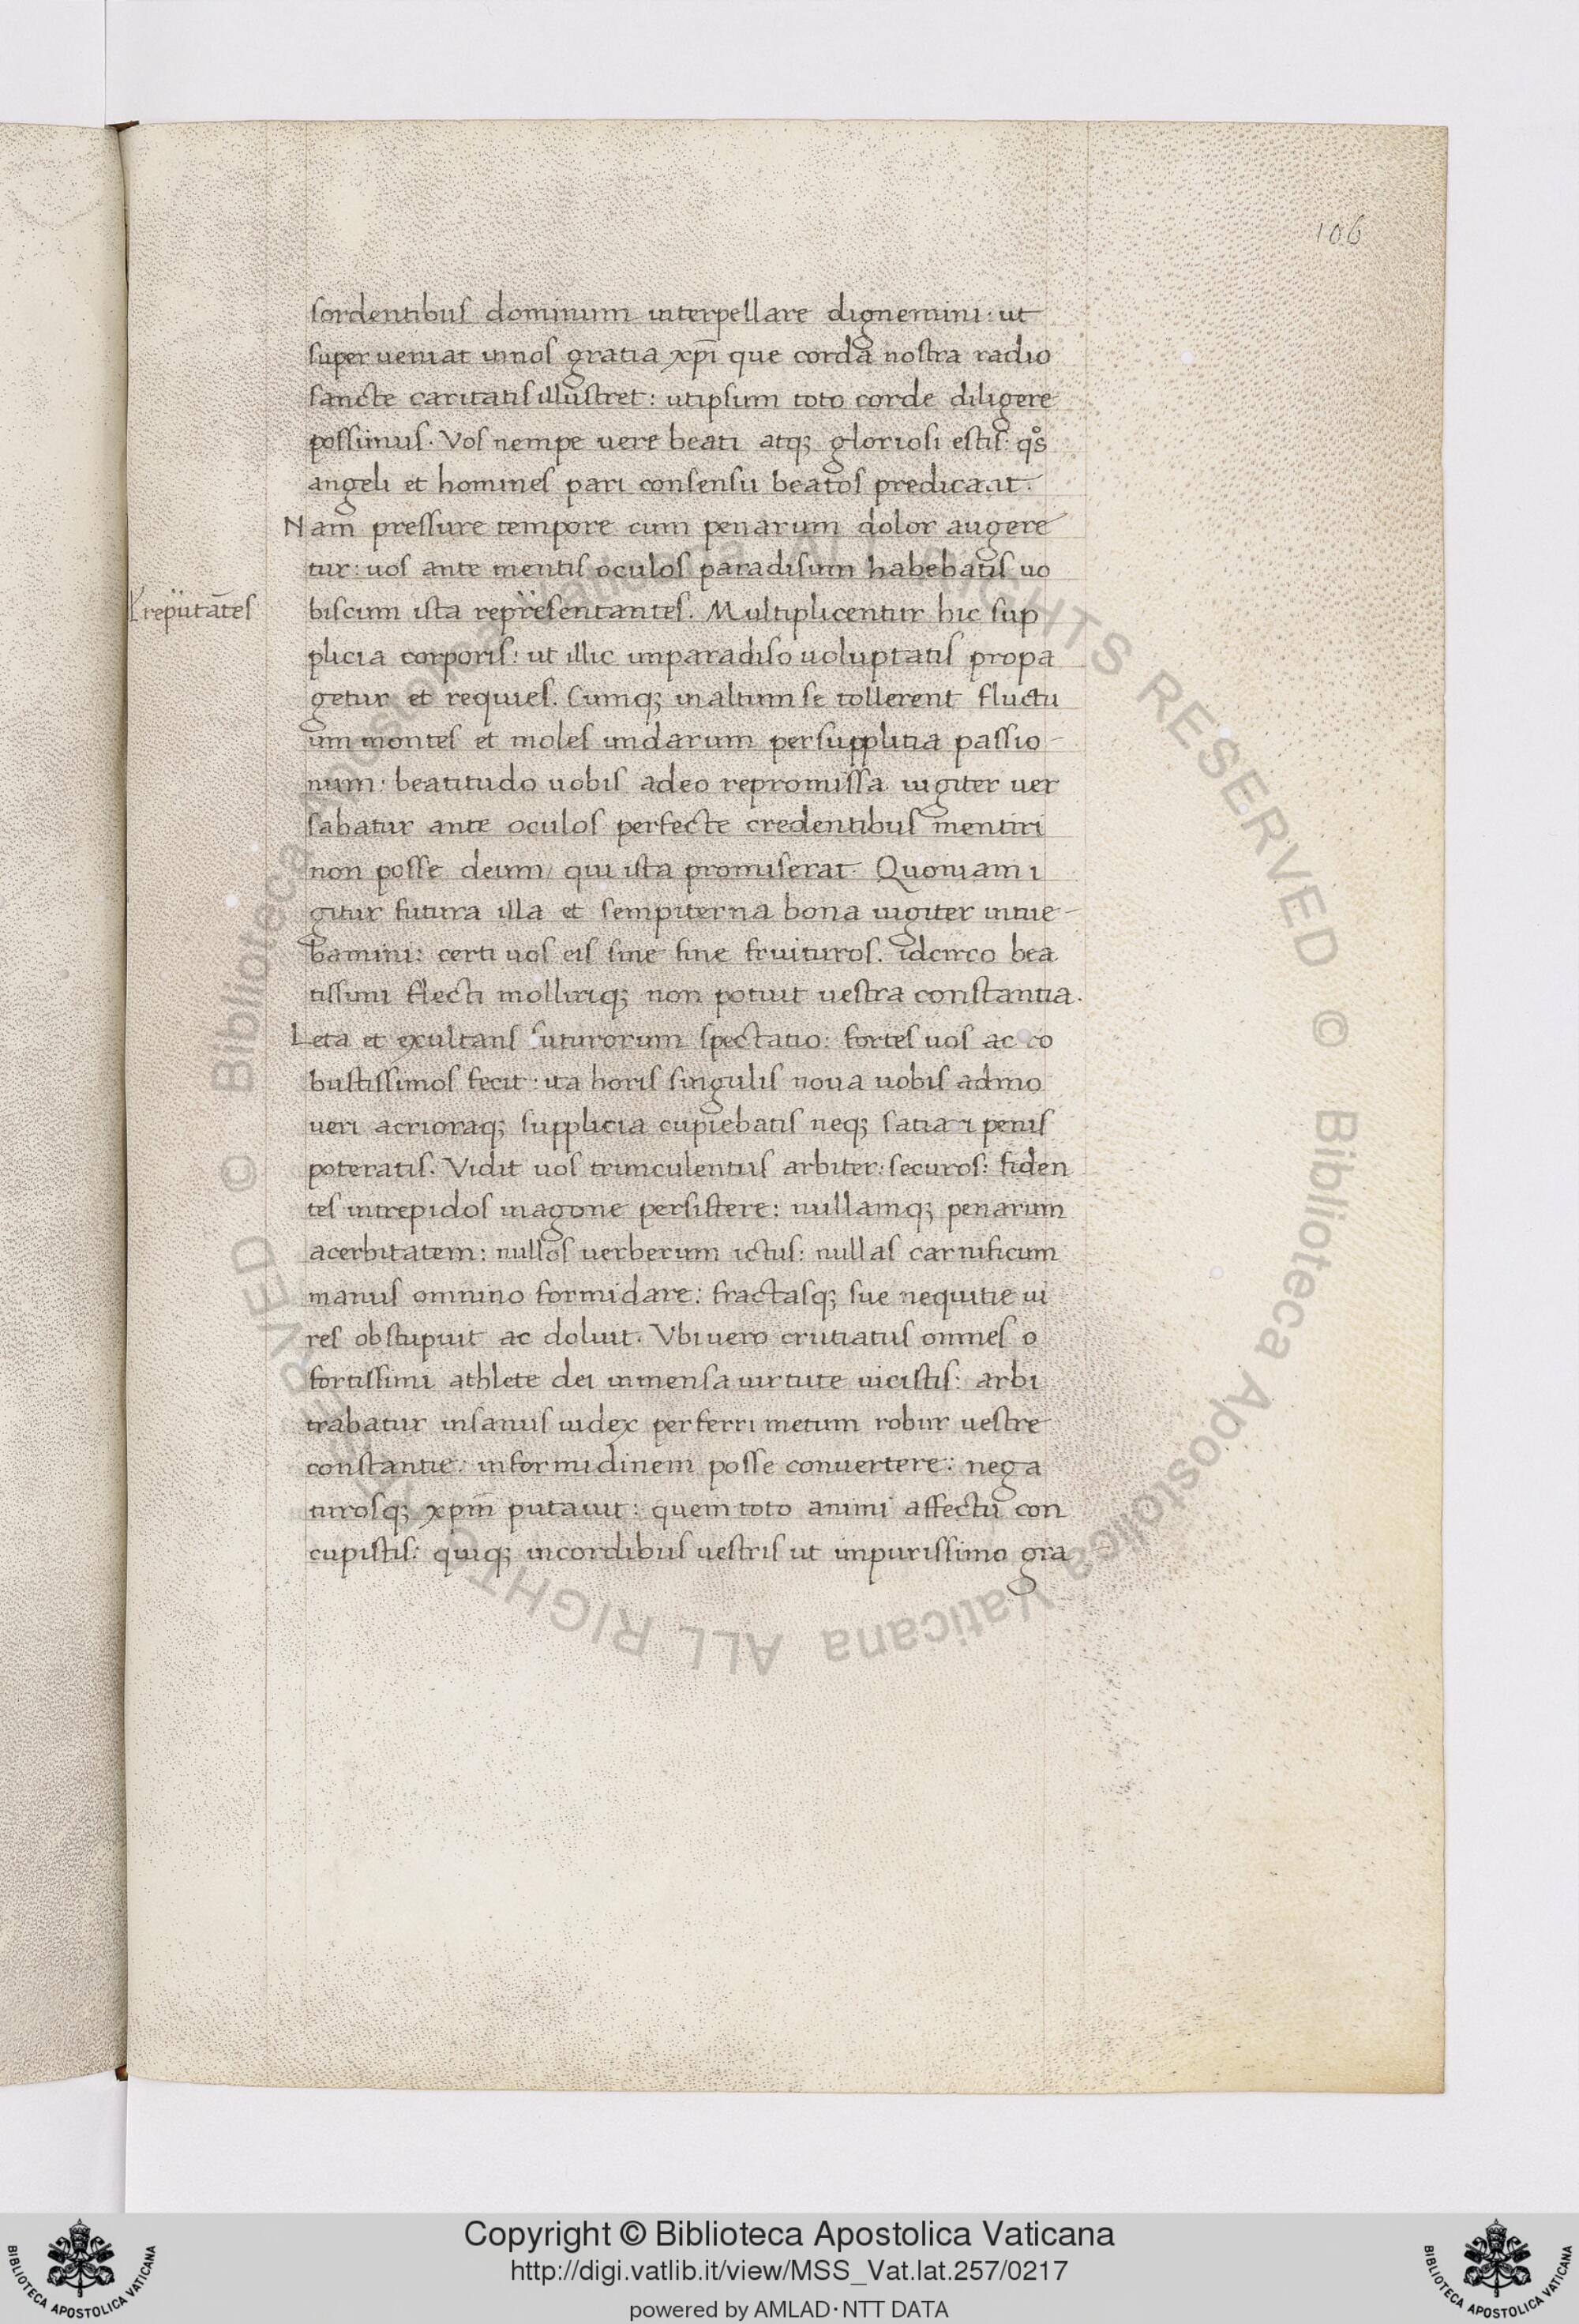 106
sordentibus dominum interpellare dignemini: ut
superueniat innos gratia xp̄i que corda nostra radio
sancte caritatis illustret: utipsum toto corde diligere
possimus. Vos nempe uere beati atq; gloriosi estis: qºs
angeli et homines pari consensu beatos predicant.
Nam pressure tempore cum penarum dolor augere
tur: uos ante mentis oculos paradisum habebatis uo
reputātes
biscum ista representantes. Multiplicentur hic sup
plicia corporis: ut illic inparadiso uoluptatis propa
getur et requies. Cumq; inaltum se tollerent fluctu
um montes et moles undarum persupplitia passio-
num: beatitudo uobis adeo repromissa iugiter uer
sabatur ante oculos perfecte credentibus mentiri
non posse deum/ qui ista promiserat. Quoniam i
gitur futura illa et sempiterna bona iugiter intue-
bamini: certi uos eis sine fine fruituros. idcirco bea
tissimi flecti molliriq; non potuit uestra constantia.
Leta et exultans futurorum spectatio: fortes uos ac ro
bustissimos fecit: ita horis singulis noua uobis admo
ueri acrioraq; supplicia cupiebatis neq; satiari penis
poteratis. Vidit uos trunculentus arbiter: securos: fiden
tes intrepidos inagone persistere: nullamq; penarum
acerbitatem: nullos uerberum ictus: nullas carnificum
manus omnino formidare: fractasq; sue nequitie ui
res obstupuit ac doluit. Vbiuero crutiatus omnes o
fortissimi athlete dei inmensa uirtute uicistis: arbi
trabatur insanus iudex perferri metum robur uestre
constantie: informidinem posse conuertere: nega
turosq; xp̄m putauit: quem toto animi affectu con
cupistis: quiq; incordibus uestris ut inpurissimo gra
Copyright © Biblioteca Apostolica Vaticana
http://digi.vatlib.it/view/MSS_Vat.lat.257/0217
powered by AMLAD·NTT DATA